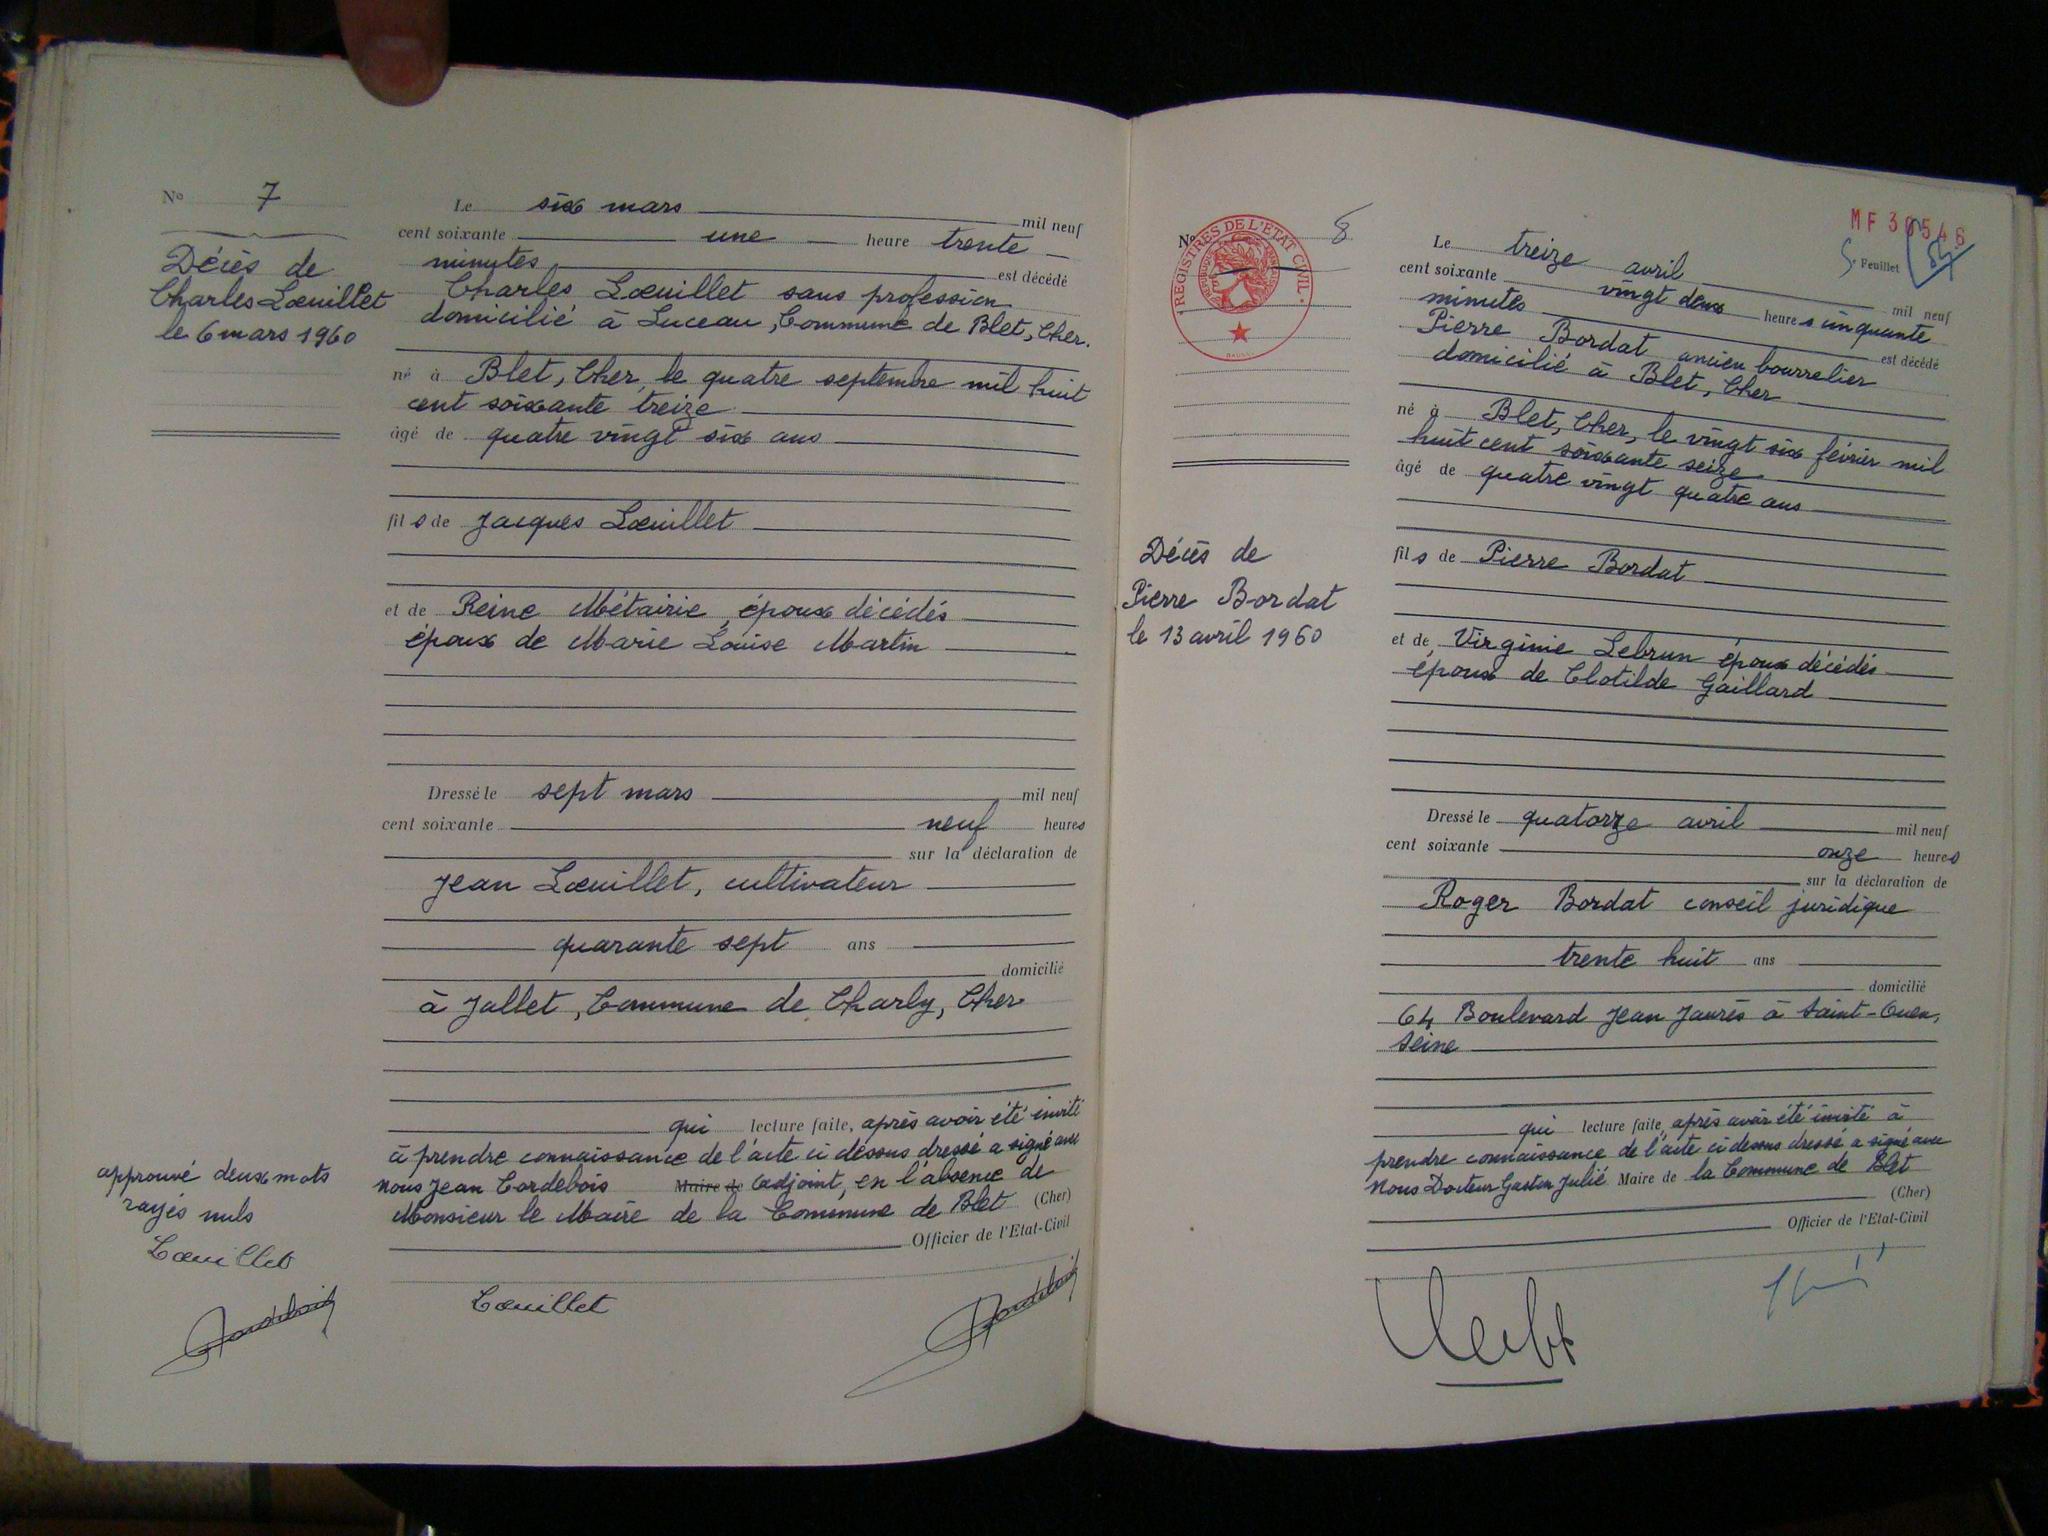 No 7
Décès de
Charles Lœuillet
le 6 mars 1960
Le six mars mil neuf
cent soixante une heure trente
minutes est décédé
Charles Lœuillet sans profession
domicilié à Luceau, Commune de Blet, Cher.
né à Blet, Cher, le quatre septembre mil huit
cent soixante treize
âgé de quatre vingt six ans
fils de Jacques Lœuillet
et de Reine Métairie, époux décédés
époux de Marie Louise Martin
Dressé le sept mars mil neuf
cent soixante neuf heures
sur la déclaration de
Jean Lœuillet, cultivateur
quarante sept ans
domicilié
à Jallet, Commune de Charly, Cher
qui lecture faite, après avoir été invité
à prendre connaissance de l'acte ci dessus dressé a signé avec
nous Jean Cordebois Maire de adjoint, en l'absence de
Monsieur le Maire de la Commune de Blet (Cher)
Officier de l'Etat-Civil
approuvé deux mots
rayés nuls
Lœuillet
Lœuillet
No 8
REGISTRES DE L'ETAT CIVIL
MF 30546
5e Feuillet
Décès de
Pierre Bordat
le 13 avril 1960
Le treize avril mil neuf
cent soixante vingt deux heures cinquante
minutes est décédé
Pierre Bordat ancien bourrelier
domicilié à Blet, Cher
né à Blet, Cher, le vingt six février mil
huit cent soixante seize
âgé de quatre vingt quatre ans
fils de Pierre Bordat
et de Virginie Lebrun époux décédés
époux de Clotilde Gaillard
Dressé le quatorze avril mil neuf
cent soixante onze heures
sur la déclaration de
Roger Bordat conseil juridique
trente huit ans
domicilié
64 Boulevard Jean Jaurès à Saint-Ouen,
Seine
qui lecture faite, après avoir été invité à
prendre connaissance de l'acte ci dessus dressé a signé avec
Nous Docteur Gaston Julié Maire de la Commune de Blet
(Cher)
Officier de l'Etat-Civil